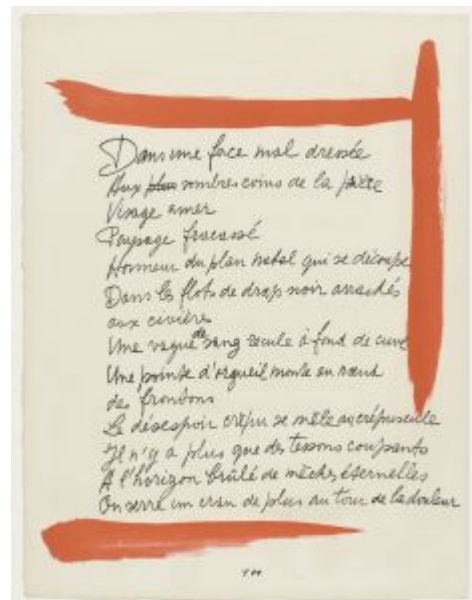 Dans une face mal dressée
Aux plus sombres coins de la
Visage amer
Paysage fracassé
Honneur du plan natal qui se découpe
Dans les flots de drap noir arrachés
aux civières
Une vague de sang recule à fond de cuve
Une pointe d'orgueil monte au nœud
des frontons
Le désespoir crépu se mêle au crépuscule
Il n'y a plus que des tessons coupants
A l'horizon brûlé de mèches éternelles
On serre un cran de plus au tour de la douleur